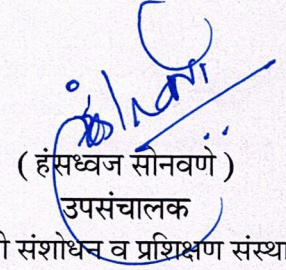 ( हंसध्वज सोनवणे )
उपसंचालक
संशोधन व प्रशिक्षण